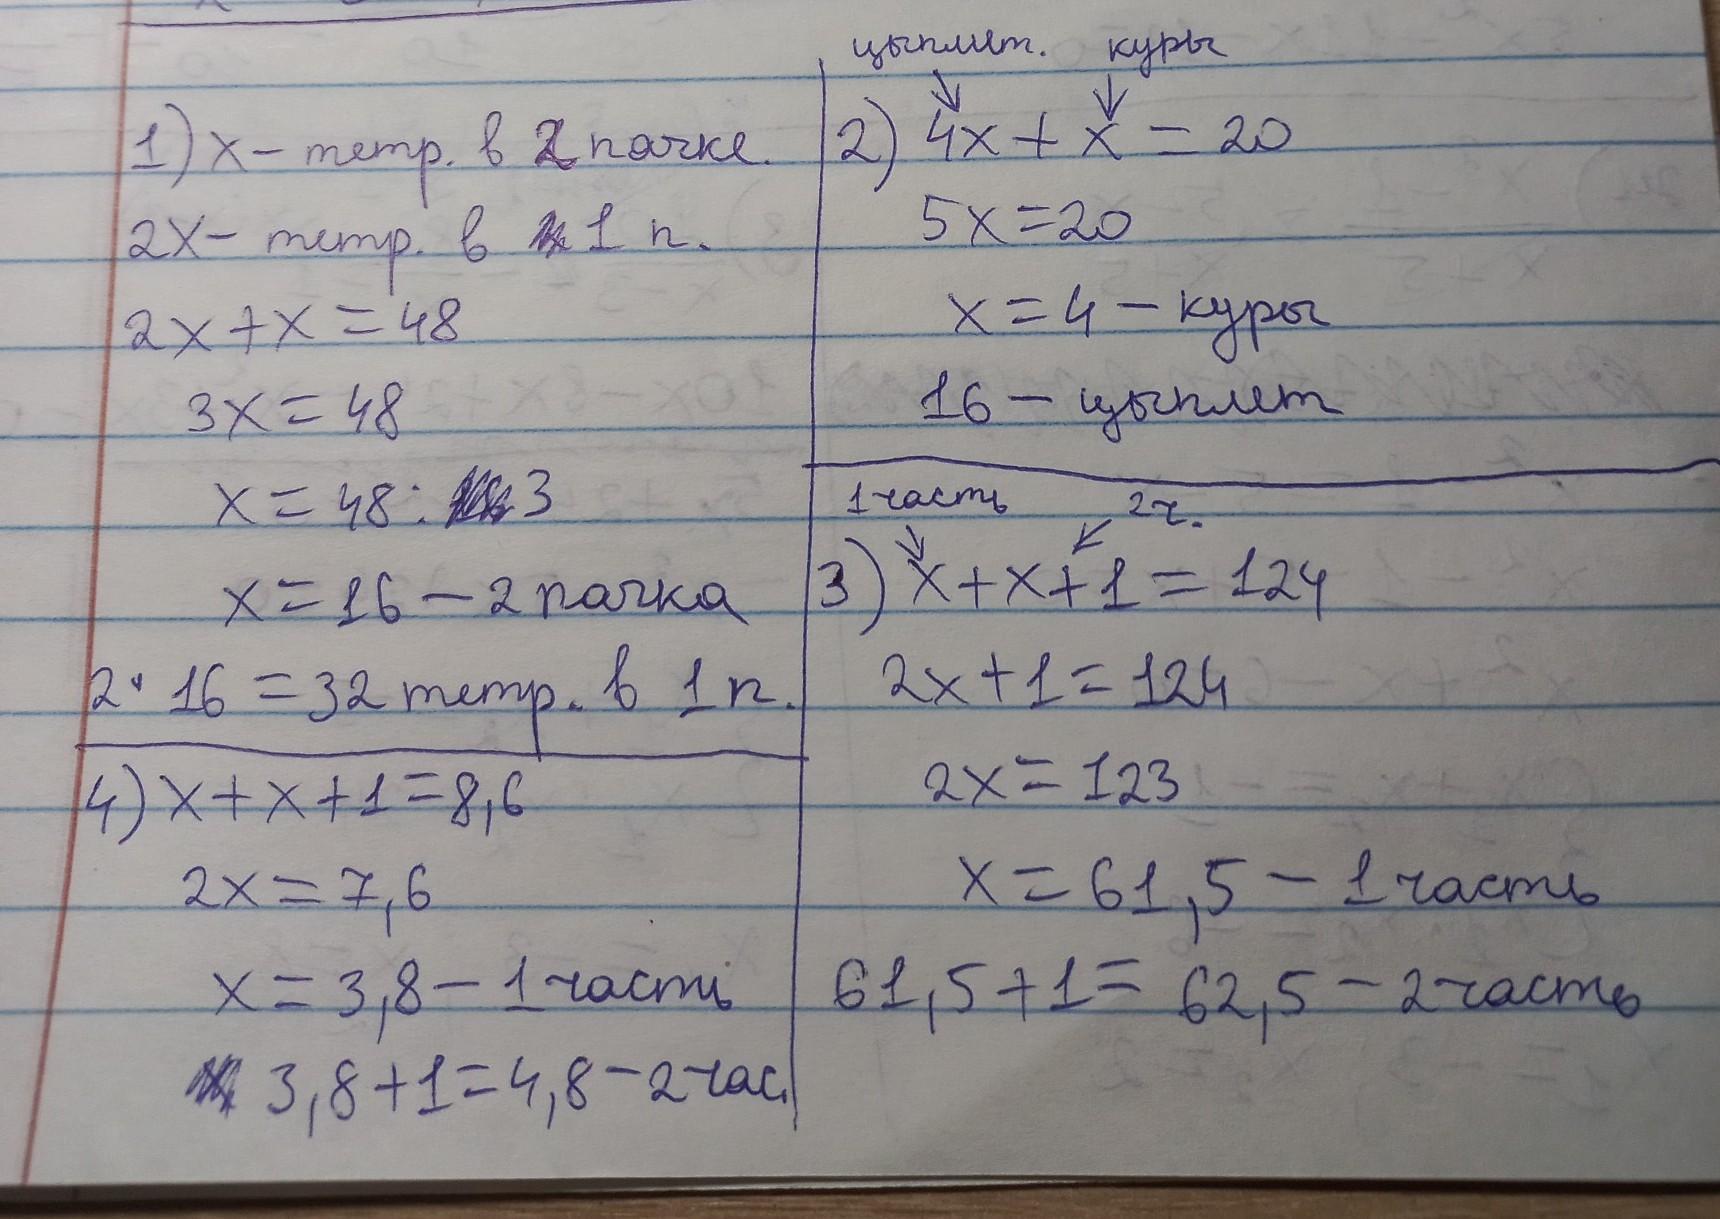 1) х – тетр. в 2 пачке.
2х – тетр. в 1 п.
2х + х = 48
3х = 48
х = 48 : 3
х = 16 – 2 пачка
2 · 16 = 32 тетр. в 1 п.
цыплят. куры
2) 4х + х = 20
5х = 20
х = 4 – куры
16 – цыплят
1 часть 2 ч.
3) х + х + 1 = 124
2х + 1 = 124
2х = 123
х = 61,5 – 1 часть
61,5 + 1 = 62,5 – 2 часть
4) х + х + 1 = 8,6
2х = 7,6
х = 3,8 – 1 часть
3,8 + 1 = 4,8 – 2 час.